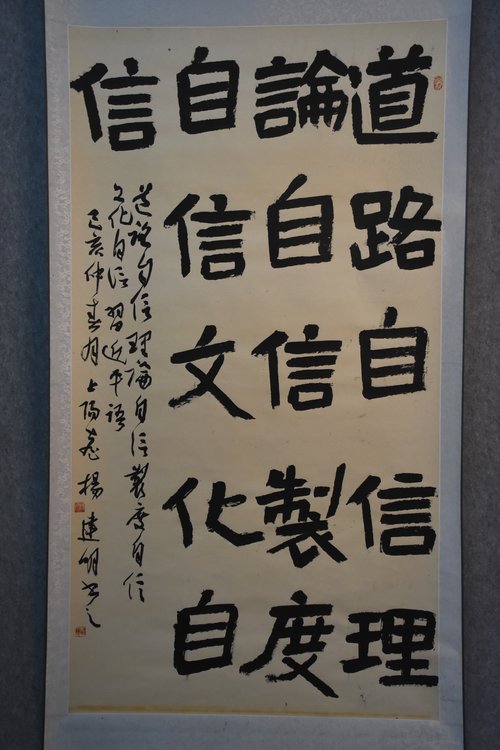 道路自信理
論自信製度
自信文化自
信
道路自信理論自信製度自信
文化自信習近平語
己亥仲春月上陽楊建明書之